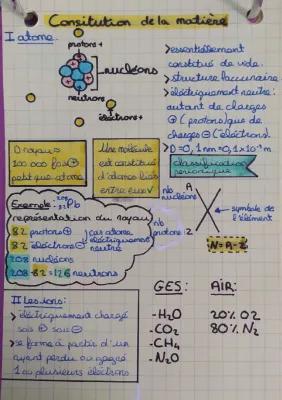 Consitution de la matière
I atome:
protons +
nucléons
neutrons
électrons -
> essentiellement
constitué de vide.
> structure lacunaire
> éléctriquement neutre:
autant de charges
⊕ (protons) que de
charges ⊖ (électrons).
> D=0,1nm=0,1×10⁻⁹ m
classification
periodique
D noyau≈
100 000 fois ⊕
petit que atome
Une molécule
est constitué
d'atomes liés
entre eux
nb
nucléons
A
X
symbole de
l'élément
nb
protons
Z
N=A-Z
Exemple: ²⁰⁸₈₂Pb
représentation du noyau
82 protons ⊕
82 électrons ⊖
car atome
éléctriquement
neutre
208 nucléons
208-82=126 neutrons
II Les ions:
> éléctriquement chargé
sois ⊕ sois ⊖
> se forme à partir d'un
ayant perdu ou gagné
1 ou plusieurs éléctrons
GES:
-H₂O
-CO₂
-CH₄
-N₂O
AIR:
20% O2
80% N₂